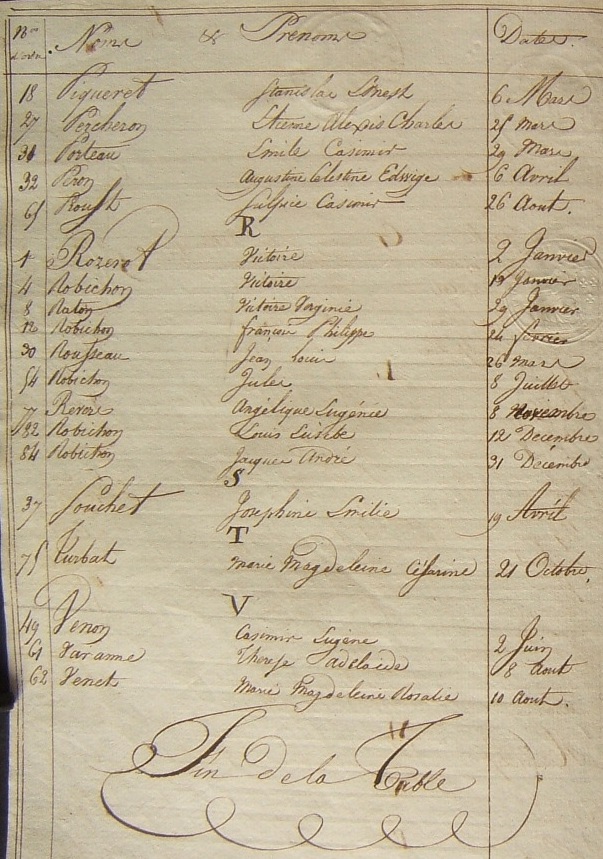 Nos d'ordre Noms & Prenoms Dates.
18 Piqueret Stanislas Ernest 6 Mars
27 Percheron Etienne Alexis Charles 25 Mars
31 Porteau Emile Casimir 29 Mars
32 Peron Augustine Celestine Edwige 6 Avril
65 Sulpice Casimir 26 Aout.
R
1 Rozerot Victoire 2 Janvier
4 Robichon Victoire 19 Janvier
8 Raton Victoire Virginie 29 Janvier
12 Robichon françois Philippe 24 fevrier
30 Rousseau Jean Louis 26 Mars
54 Robichon Jules 8 Juillet
77 Angélique Eugénie 8 Novembre
82 Robichon Louis 12 Décembre
84 Robichon Jacques André 31 Décembre
S
37 Souchet Josephine Emilie 19 Avril
T
75 Turbat Marie Magdeleine Césarine 21 Octobre,
V
49 Venon Casimir Eugène 2 Juin
61 Varanne Therese Adelaide 8 Aout
62 Venet Marie Magdeleine Rosalie 10 Aout.
Fin de la Table